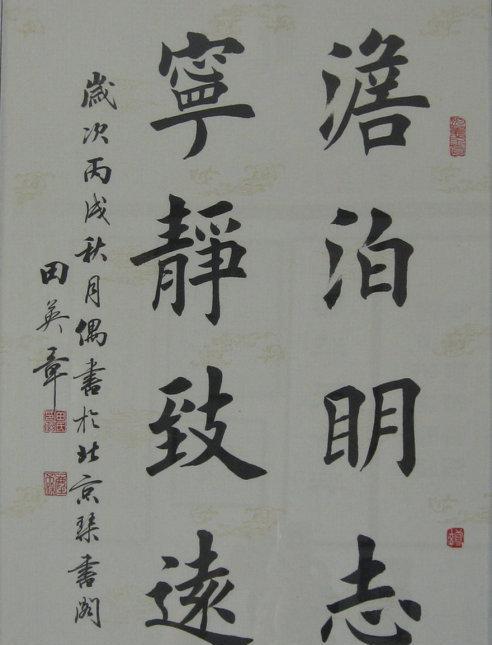 澹泊明志
寧靜致遠
歲次丙戌秋月偶書於北京琹書閣
田英章